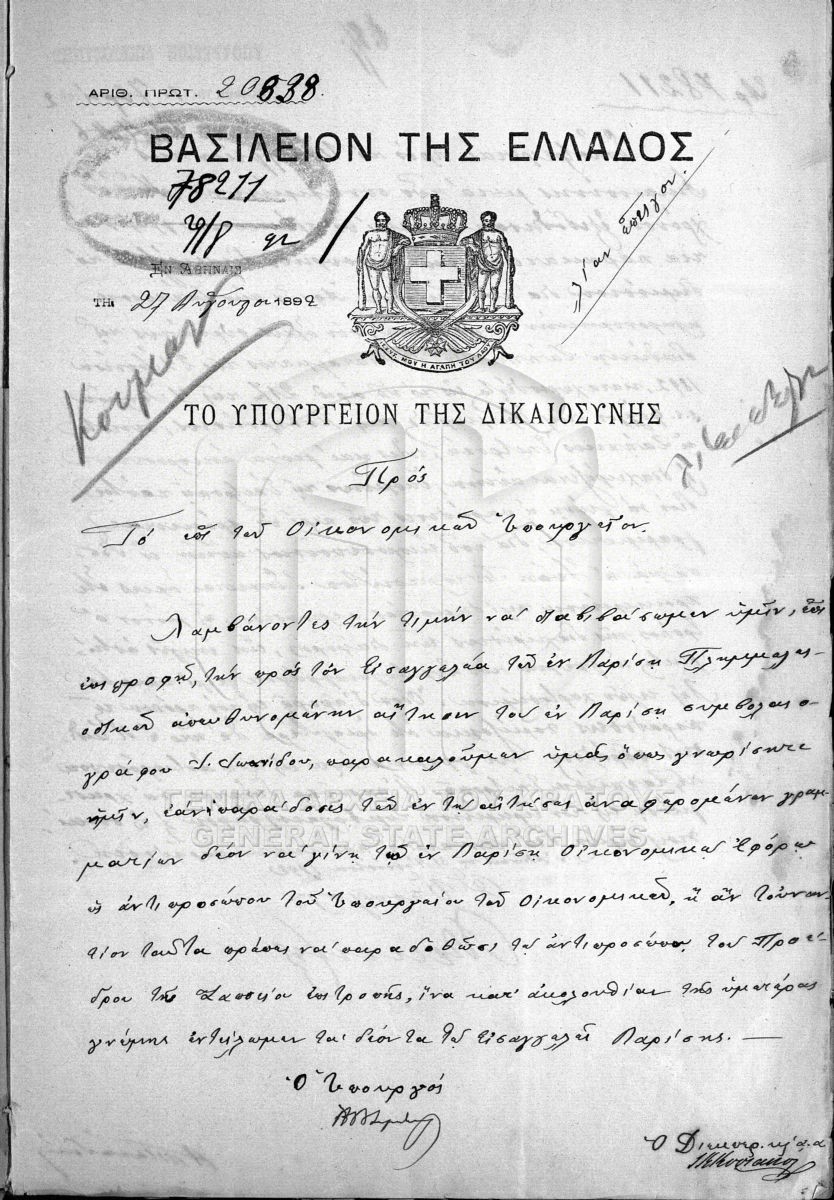 ΑΡΙΘ. ΠΡΩΤ. 20838.
ΒΑΣΙΛΕΙΟΝ ΤΗΣ ΕΛΛΑΔΟΣ
78211
29/8 92
λίαν ἐπεῖγον.
ΕΝ ΑΘΗΝΑΙΣ
ΤΗ 27 Αὐγούστου 1892
ΙΣΧΥΣ ΜΟΥ Η ΑΓΑΠΗ ΤΟΥ ΛΑΟΥ
ΤΟ ΥΠΟΥΡΓΕΙΟΝ ΤΗΣ ΔΙΚΑΙΟΣΥΝΗΣ
Πρός
Τό ἐπί τῶν Οἰκονομικῶν Ὑπουργεῖον.
Λαμβάνοντες τήν τιμήν νά διαβιβάσωμεν ὑμῖν, ἐπί
ἐπιστροφῇ, τήν πρός τόν Εἰσαγγελέα τῶν ἐν Λαρίσῃ Πλημμελειο-
δικῶν ἀπευθυνομένην αἴτησιν τοῦ ἐν Λαρίσῃ συμβολαιο-
γράφου Ι. Ἰωανίδου, παρακαλοῦμεν ὑμᾶς ὅπως γνωρίσητε
ἡμῖν, ἐάν ἡ παράδοσις τῶν ἐν τῇ αἰτήσει ἀναφερομένων γραμ-
ματίων δέον νά γίνῃ τῷ ἐν Λαρίσῃ Οἰκονομικῷ Ἐφόρῳ
ὡς ἀντιπροσώπου τοῦ Ὑπουργείου τῶν Οἰκονομικῶν, ἤ ἄν τοὐναν-
τίον ταῦτα πρέπει νά παραδοθῶσι τῷ ἀντιπροσώπῳ τοῦ Προέ-
δρου τῆς Ζαππείου ἐπιτροπῆς, ἵνα κατ' ἀκολουθίαν τῆς ὑμετέρας
γνώμης ἐντείλωμεν τά δέοντα τῷ Εἰσαγγελεῖ Λαρίσης. —
Ὁ Ὑπουργός
ΓΕΝΙΚΑ ΑΡΧΕΙΑ ΤΟΥ ΚΡΑΤΟΥΣ
GENERAL STATE ARCHIVES